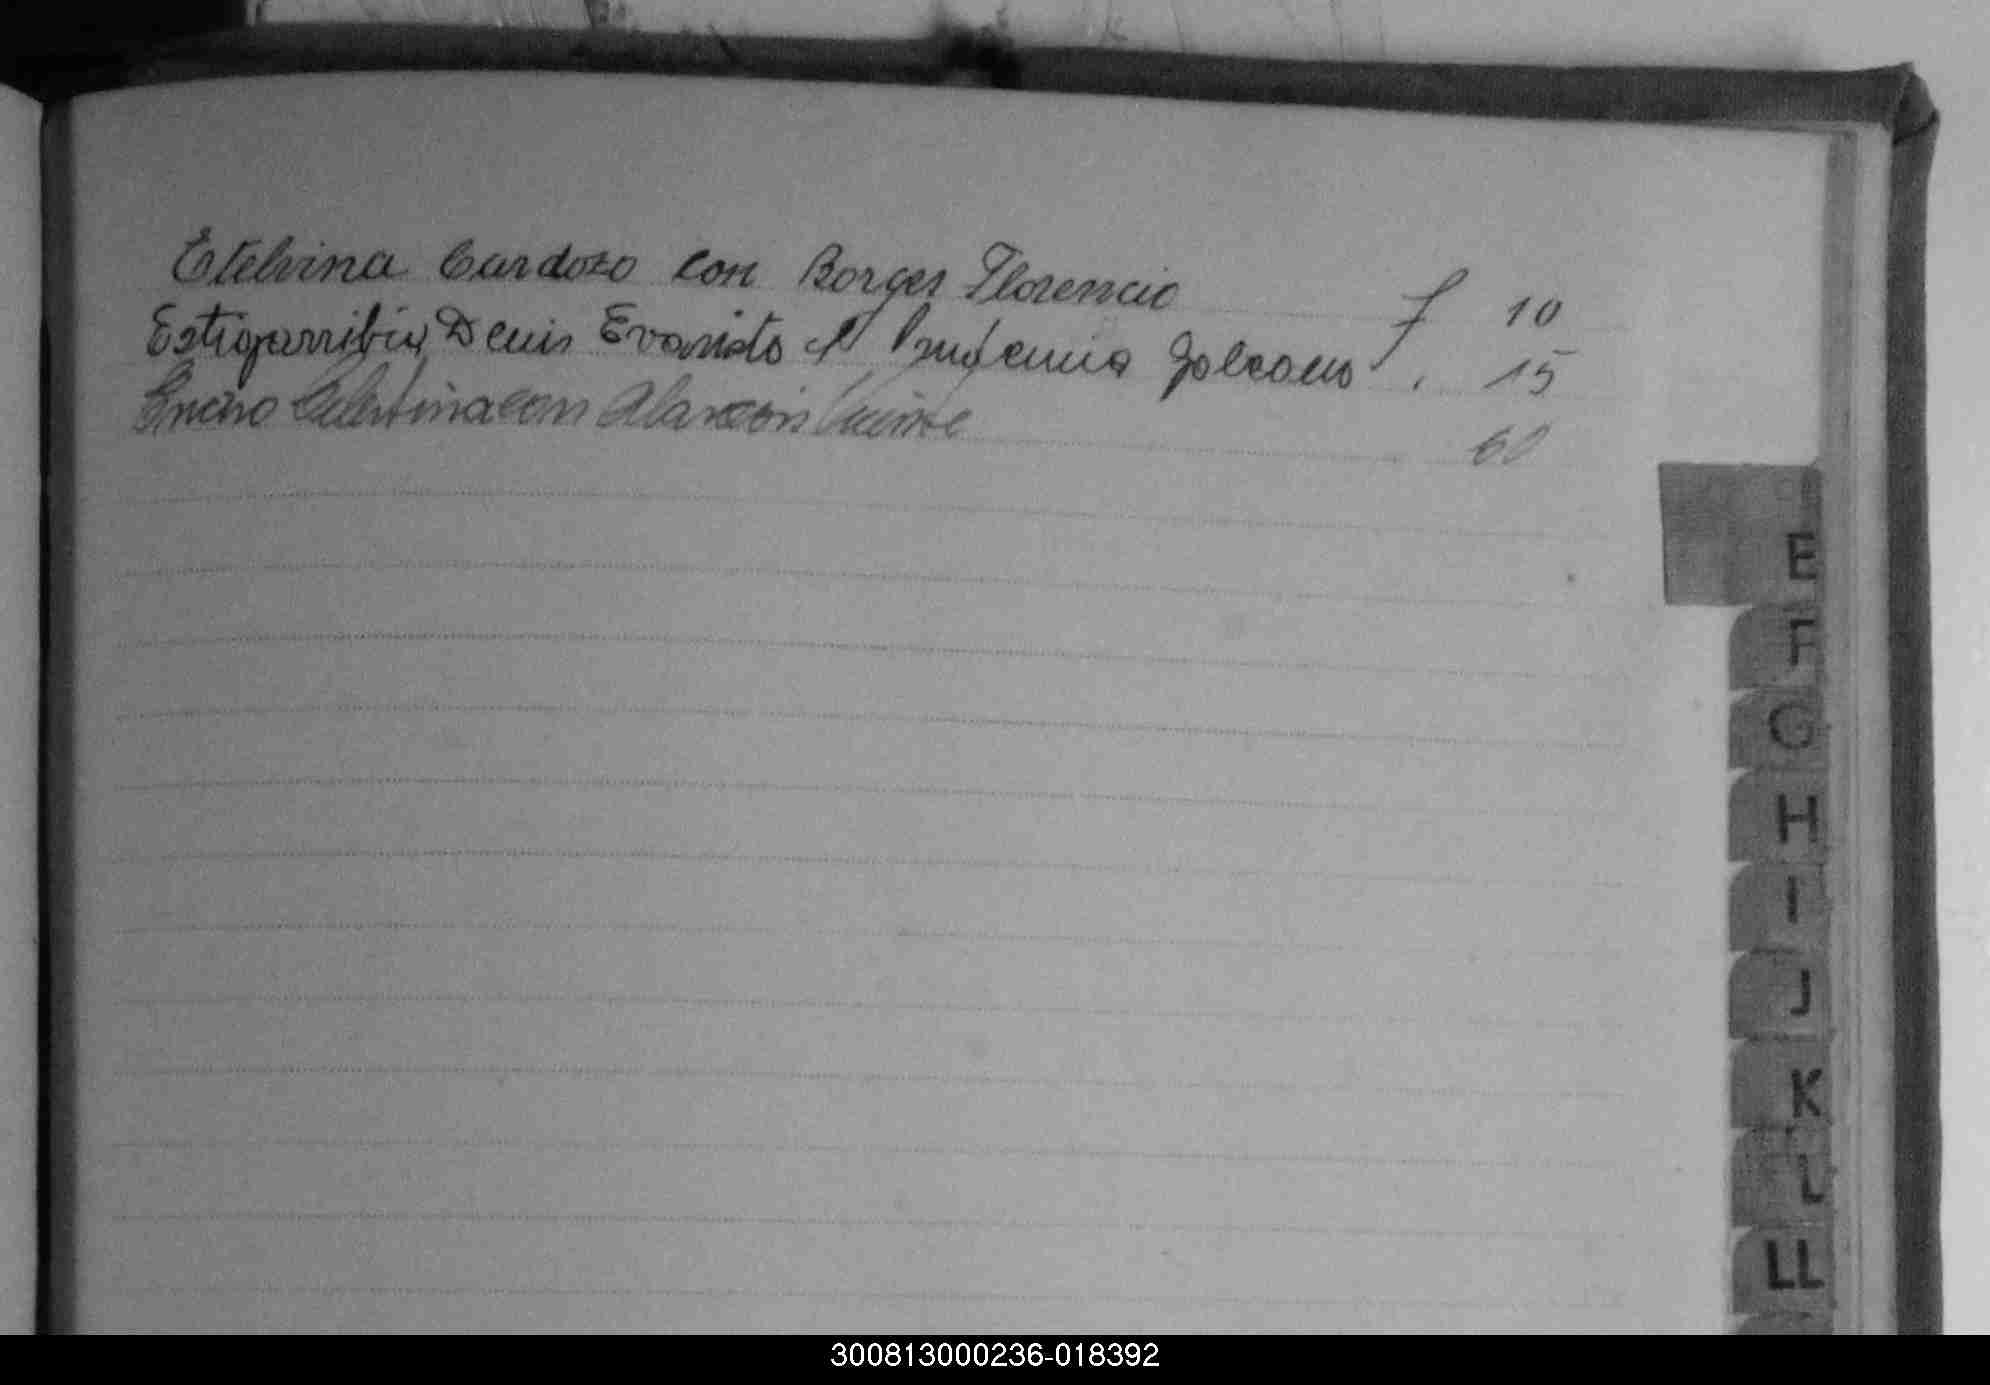 Etelvina Cardozo con Borges Florencio f 10
Estigarribia Denis Evaristo c/ Prudencia Galeano . 15
Enciso Celestina con Alarcon 60
E
F
G
H
I
J
K
L
LL
300813000236-018392